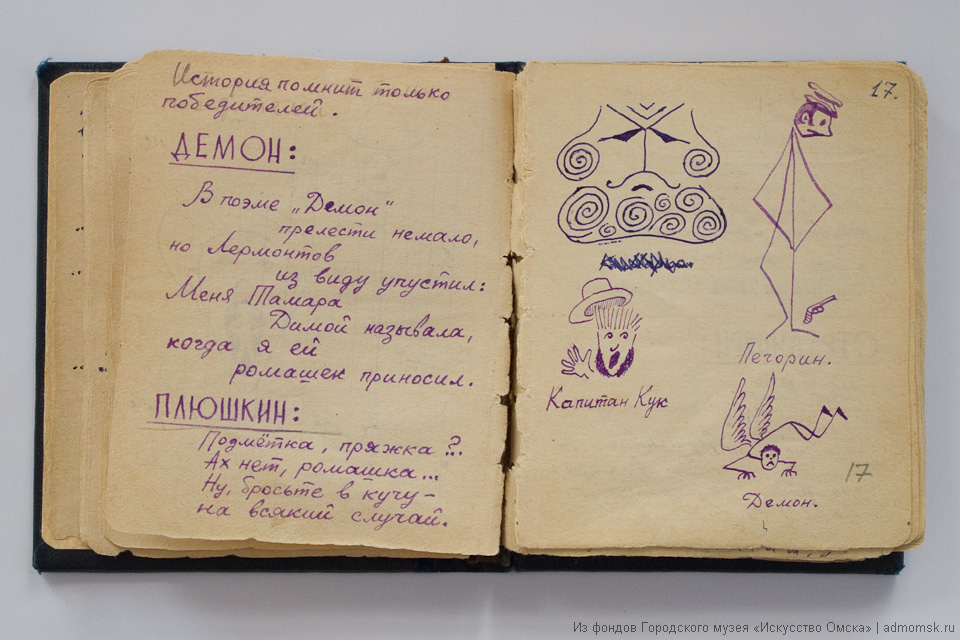 История помнит только
победителей.
ДЕМОН:
В поэме „Демон“
прелести немало,
но Лермонтов
из виду упустил:
Меня Тамара
Димой называла,
когда я ей
ромашек приносил.
ПЛЮШКИН:
Подмётка, пряжка?..
Ах нет, ромашка...
Ну, бросьте в кучу –
на всякий случай.
17.
Капитан Кук
Печорин.
Демон.
17
Из фондов Городского музея «Искусство Омска» | admomsk.ru